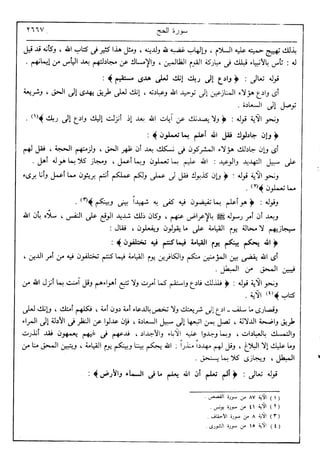 سورة الحج
٢٦٦٧
بذلك تهييج حميته عليه السلام ، وإلهاب غضبه لله ولدينه ، ومثل هذا كثير فى كتاب الله ، وكأنه قد قيل
له : تأس بالأنبياء قبلك فى متاركة القوم الظالمين ، والإمساك عن مجادلتهم بعد اليأس من إيمانهم .
قوله تعالى : ﴿ وادع إلى ربك إنك لعلى هدى مستقيم ﴾ :
أى وادع هؤلاء المنازعين إلى توحيد الله وعبادته ، إنك لعلى طريق يهدى إلى الحق ، وشريعة
توصل إلى السعادة .
ونحو الآية قوله : ﴿ ولا يصدنك عن آيات الله بعد إذ أنزلت إليك وادع إلى ربك ﴾(١) .
﴿ وإن جادلوك فقل الله أعلم بما تعملون ﴾ :
أى وإن جادلك هؤلاء المشركون فى نسكك بعد أن ظهر الحق ، ولزمتهم الحجة ، فقل لهم
على سبيل التهديد والوعيد : الله عليم بما تعملون وبما أعمل ، ومجاز كلا بما هو له أهل .
ونحو الآية قوله : ﴿ وإن كذبوك فقل لى عملى ولكم عملكم أنتم بريئون مما أعمل وأنا برىء
مما تعملون ﴾(٢) .
وقوله : ﴿ هو أعلم بما تفيضون فيه كفى به شهيدا بينى وبينكم ﴾(٣) .
وبعد أن أمر رسوله ﷺ بالإعراض عنهم ، وكان ذلك شديد الوقع على النفس ، سلاه بأن الله
سيجازيهم لا محالة يوم القيامة على ما يقولون ويفعلون ، فقال :
﴿ الله يحكم بينكم يوم القيامة فيما كنتم فيه تختلفون ﴾ :
أى الله يقضى بين المؤمنين منكم والكافرين يوم القيامة فيما كنتم تختلفون فيه من أمر الدين ،
فيبين المحق من المبطل .
ونحو الآية قوله : ﴿ فلذلك فادع واستقم كما أمرت ولا تتبع أهواءهم وقل آمنت بما أنزل الله من
كتاب ﴾(٤) الآية .
وقصارى ما سلف - ادع إلى شريعتك ولا تخص بالدعاء أمة دون أمة ، فكلهم أمتك ، وإنك لعلى
طريق واضحة الدلالة ، تصل بمن اتبعها إلى سبيل السعادة ، فإن عدلوا عن النظر فى الأدلة إلى المراء
والتمسك بالعادات ، وبما وجدوا عليه الآباء والأجداد ، فدعهم فى غيهم يعمهون فقد أنذرت
وما عليك إلا البلاغ ، وقل لهم مهددا منذرا : الله يحكم بيننا وبينكم يوم القيامة ، ويتبين المحق منا من
المبطل ، ويجازى كلا بما يستحق .
قوله تعالى : ﴿ ألم تعلم أن الله يعلم ما فى السماء والأرض ﴾ :
(١) الآية ٨٧ من سورة القصص .
(٢) الآية ٤١ من سورة يونس .
(٣) الآية ٨ من سورة الأحقاف .
(٤) الآية ١٥ من سورة الشورى .